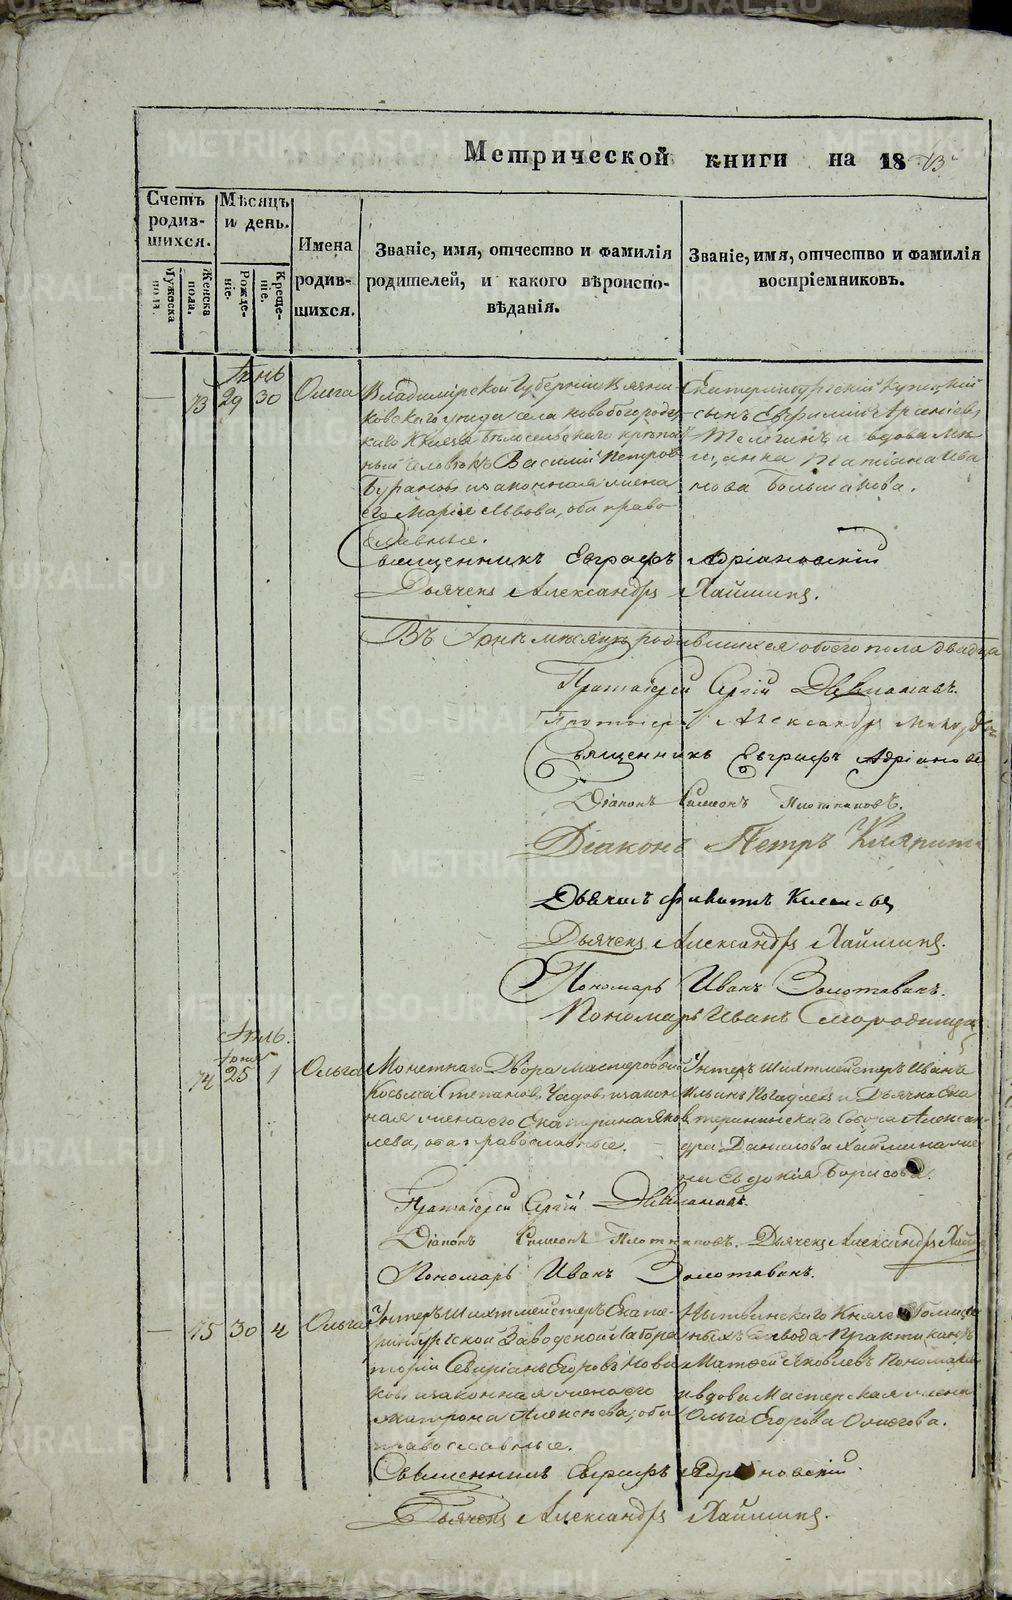 Метрической книги на 18
Счетъ родив-шихся.
Мѣсяцъ и день.
Имена родив-шихся.
Званіе, имя, отчество и фамилія родителей, и какого вѣроиспо-вѣданія.
Званіе, имя, отчество и фамилія воспріемниковъ.
Мужеска пола.
Женска пола.
Рожде-ніе.
Креще-ніе.
Іюнь
73 29 30 Ольга
Владимірской Губерніи Вязни-
ковскаго уезда села Новобогородс-
каго Князя Бѣлосельскаго крѣпост-
ный человѣкъ Василій Петровъ
законная жена
его Марія Львова, оба право-
славные.
Екатеринбургскій Купецкій
сынъ
Телегинъ и вдова Мѣ-
щанка Татіана Ива-
нова Большакова.
Священникъ Евграфъ Адріановскій
Дьячекъ Александръ Хаймина.
Въ Іюнѣ мѣсяцѣ родившихся обоего пола двадца
Протоіерей Сергій
Протоіерей Александръ
Священникъ Евграфъ Адріановс
Діаконъ Симеонъ Плотниковъ.
Діаконъ Петръ
Дьячекъ
Дьячекъ Александръ Хаймина.
Пономарь Иванъ Золотавинъ.
Пономарь Иванъ Смородинца
Іюль.
Іюня
74 25 1 Ольга
Монетнаго Двора Мастеровой
Косьма Степановъ Чадовъ, закон-
ная жена его Екатерина Яков-
лева, оба православные.
Унтеръ Шихтмейстеръ Иванъ
Ильинъ и Дьячка Ека-
терининскаго Собора Алексан-
дра Данилова Хаймина же-
на Евдокія Борисова.
Протоіерей Сергій
Діаконъ Симеонъ Плотниковъ. Дьячекъ Александръ
Пономарь Иванъ Золотавинъ.
75 30 4 Ольга
Унтеръ Шихтмейстеръ Екате-
ринбургской Заводской Лабора-
торіи Северіанъ Егоровъ Нови-
ковъ, законная жена его
Матрона Алексѣева, оба
православные.
Нытвинскаго Князя Голицы-
ныхъ завода Практикантъ
Матвей Яковлевъ
и вдова Мастерская жена
Ольга Егорова
Священникъ Евграфъ Адріановскій.
Дьячекъ Александръ Хаймина.
METRIKI.GASO-URAL.RU